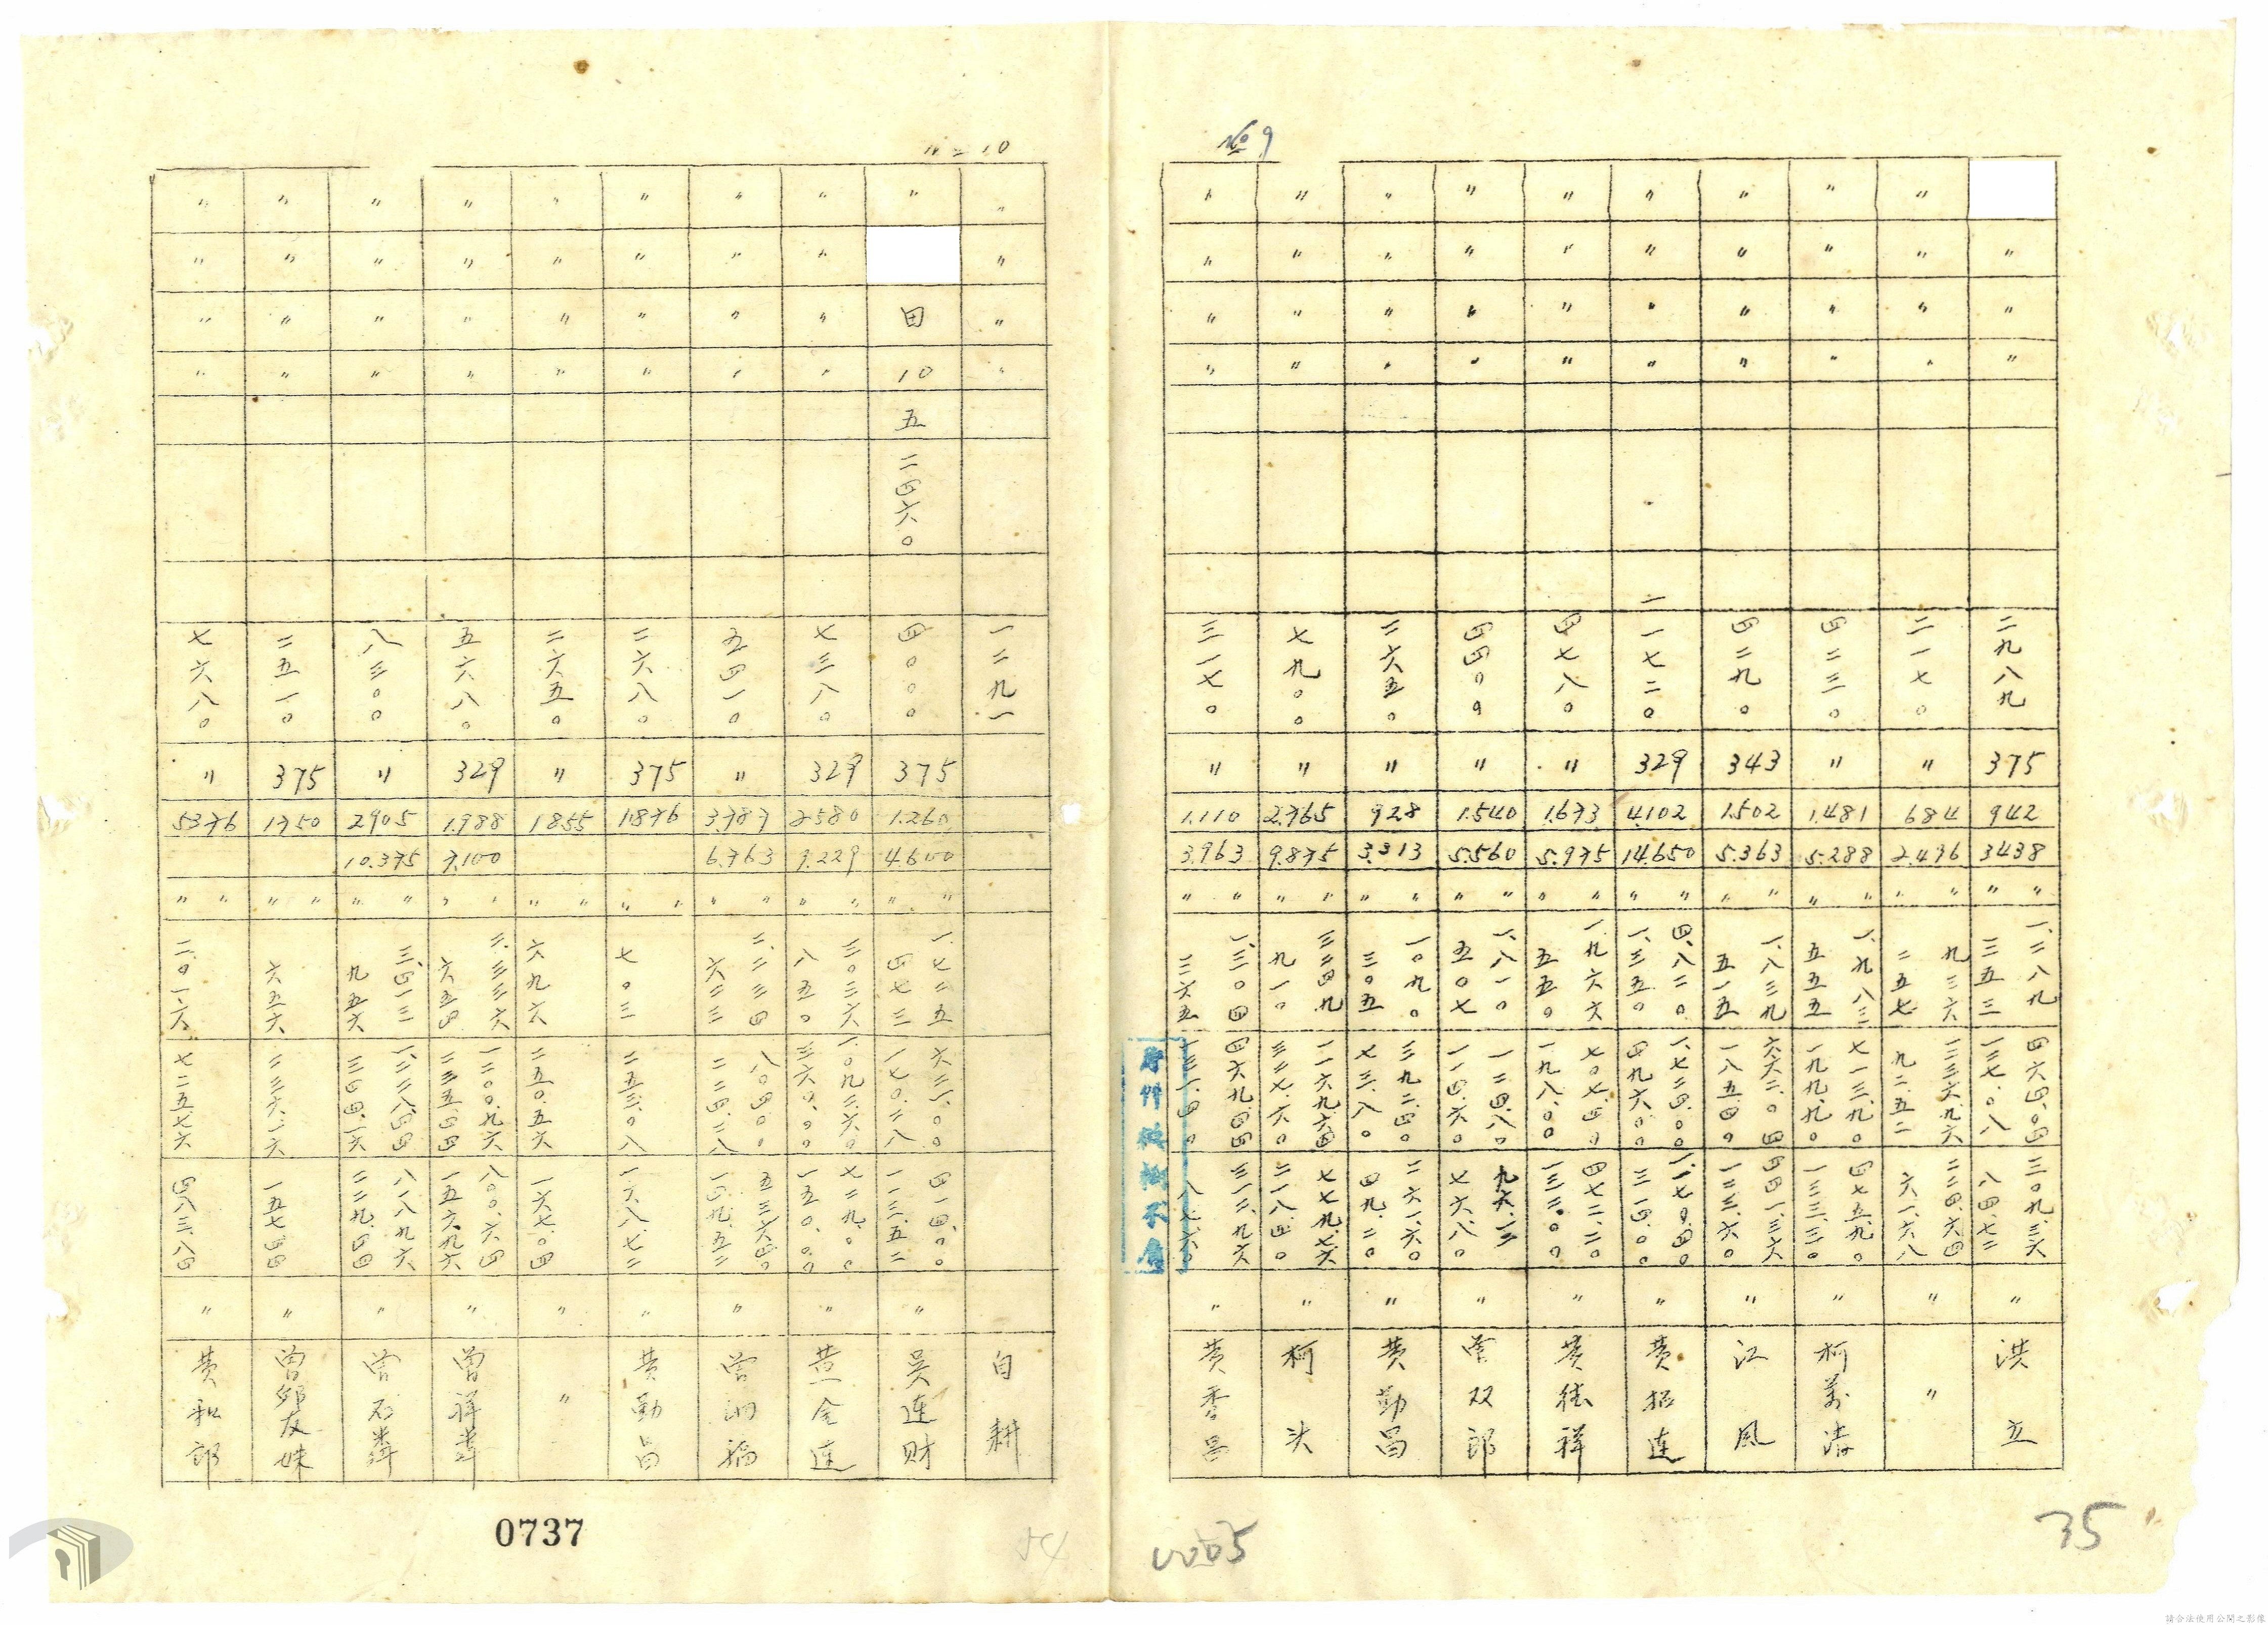 № 9
〃 〃 〃 二九八九 375 942 3438 〃 〃 一、二八九 三五三 四六四.〇四 一二七.〇八 三〇九.三六 八四.七二 〃 洪立
〃 〃 〃 〃 二一七〇 〃 684 2.436 〃 〃 九三六 二五七 九二.五二 二二四.六四 六一.六八 〃 〃
〃 〃 〃 〃 四二三〇 〃 1.481 5.288 〃 〃 一、九八三 五五五 七一三.九〇 一九九.九〇 四七五.九〇 一三三.三〇 〃 柯萬清
〃 〃 〃 〃 四二九〇 343 1.502 5.363 〃 〃 一、八三九 五一五 六六二.〇四 一八五.四〇 四四一.三六 一二三.六〇 〃 江風
〃 〃 〃 〃 一一七二〇 329 4102 14.650 〃 〃 四、八二〇 一、三五〇 四九六.〇〇 〃 黃招連
〃 〃 〃 〃 四七八〇 〃 1.673 5.975 〃 〃 一、九六六 五五〇 七〇七.四〇 一九八.〇〇 四七二.二〇 一三二.〇〇 〃 黃德祥
〃 〃 〃 〃 四四〇〇 〃 1.540 5.560 〃 〃 一、八一〇 五〇七 一一四.六〇 七六.八〇 〃 曾双郎
〃 〃 〃 〃 二六五〇 〃 928 3.313 〃 〃 一〇九〇 三〇五 三九二.四〇 七三.八〇 二六一.六〇 四九.二〇 〃 黃勤昌
〃 〃 〃 〃 七九〇〇 〃 2.765 9.875 〃 〃 九一〇 三二七.六〇 七七九.七六 二一八.四〇 〃 柯决
〃 〃 〃 〃 三一七〇 〃 1.110 3.963 〃 〃 一、三〇四 三六五 四六九.四四 一三一.四〇 三一二.九六 八七.六〇 〃 黃秀昌
35
0005
〃 = 10
〃 〃 〃 〃 一二九一 自耕
〃 田 10 五 二四六〇 四〇〇〇 375 1.260 4.600 〃 〃 一、七二五 四七三 六二一.〇〇 一七〇.二八 四一四.〇〇 一一三.五二 〃 吴連財
〃 〃 〃 〃 七三八〇 329 2580 9.229 〃 〃 八五〇 三六〇.〇〇 七二九.〇〇 一五〇.〇〇 〃 黃金連
〃 〃 〃 〃 五四一〇 〃 3787 6.763 〃 〃 二、二三四 六二三 八〇四.〇〇 二二四.二八 五三六.四〇 一四九.五二 〃 曾泗福
〃 〃 〃 〃 二六八〇 375 1876 〃 〃 七〇三 二五三.〇八 一六八.七二 〃 黃勤昌
〃 〃 〃 〃 二六五〇 〃 1855 〃 〃 六九六 二五〇.五六 一六七.〇四 〃 〃
〃 〃 〃 〃 五六八〇 329 1.988 7.100 〃 〃 六五四 二三五.四四 八〇〇.六四 一五六.九六 〃 曾祥
〃 〃 〃 〃 八三〇〇 〃 2905 10.375 〃 〃 三、四一三 九五六 一、二二八.四四 三四四.一六 八一八.九六 二二九.四四 〃 曾石
〃 〃 〃 〃 二五一〇 375 1750 〃 〃 六五六 二三六.一六 一五七.四四 〃 曾邱友妹
〃 〃 〃 〃 七六八〇 〃 5376 〃 〃 二、〇一六 七二五.七六 四八三.八四 〃 黃和郎
0737
請合法使用公開之影像